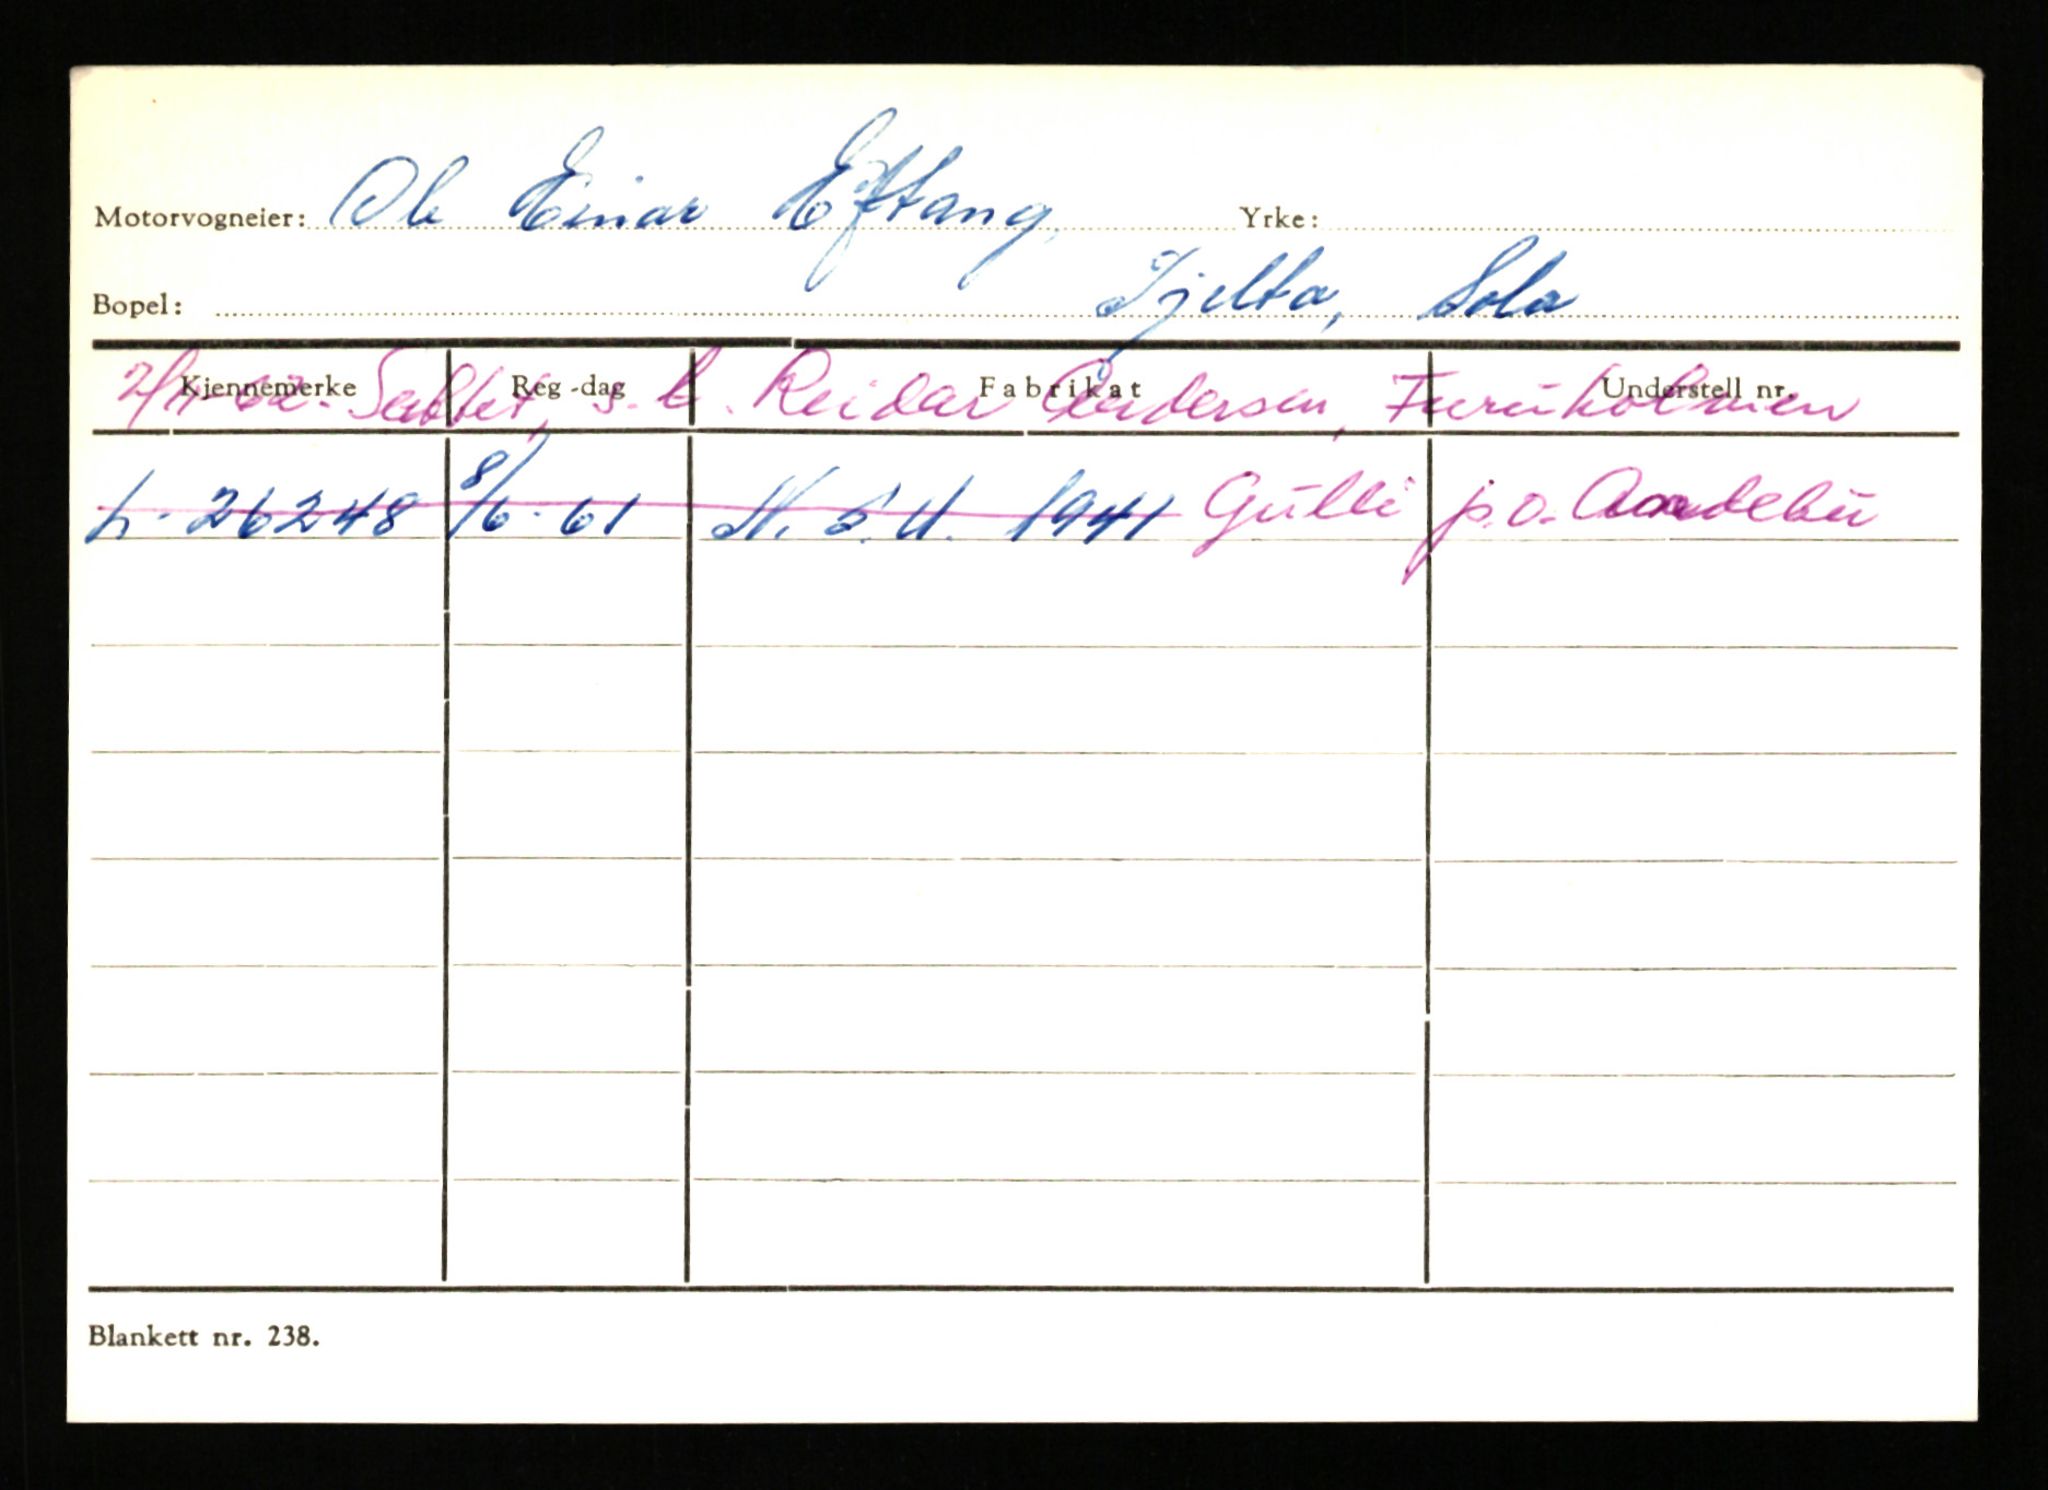 Motorvogneier: Ole Einar Eftang, Yrke:
Bopel: Tjelta, Sola
Kjennemerke Reg-dag Fabrikat Understell nr.
Solgt, s. b. Reidar Andersen, Furuholmen
L-26248 8/6-61 N.S.U. 1941 Gulli p.o. Andebu
Blankett nr. 238.